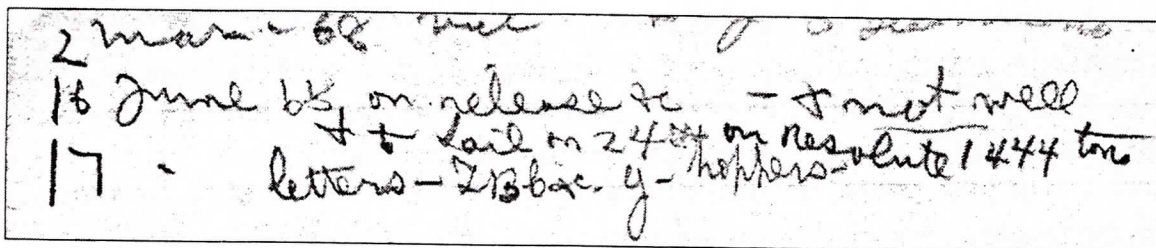 2 Mar - 68
16 June 68, on release &c - & not well
& to sail on 24th on Resolute 1444 tons
17 - letters - &c. g - hoppers -